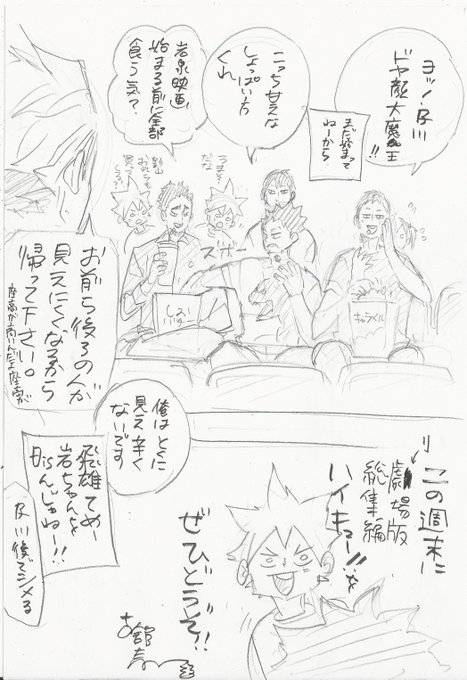 ヨッ！及川
ドヤ顔大魔王!!
まだ始まって
ねーから
こっち甘えな
しょっぱい方
くれ
岩泉映画
始まる前に全部
食う気？
うまそ
だな
スポー
しお
キャラメル
お前ら後ろの人が
見えにくくなるから
帰って下さい。
座高が高いんだよ座高が
俺はとくに
見え辛く
ないです
飛雄てめー
岩ちゃんを
バカんじゃねー!!
及川後でシメる
この週末に
劇場版
総集編
ハイキュー!!を
ぜひどうぞ!!